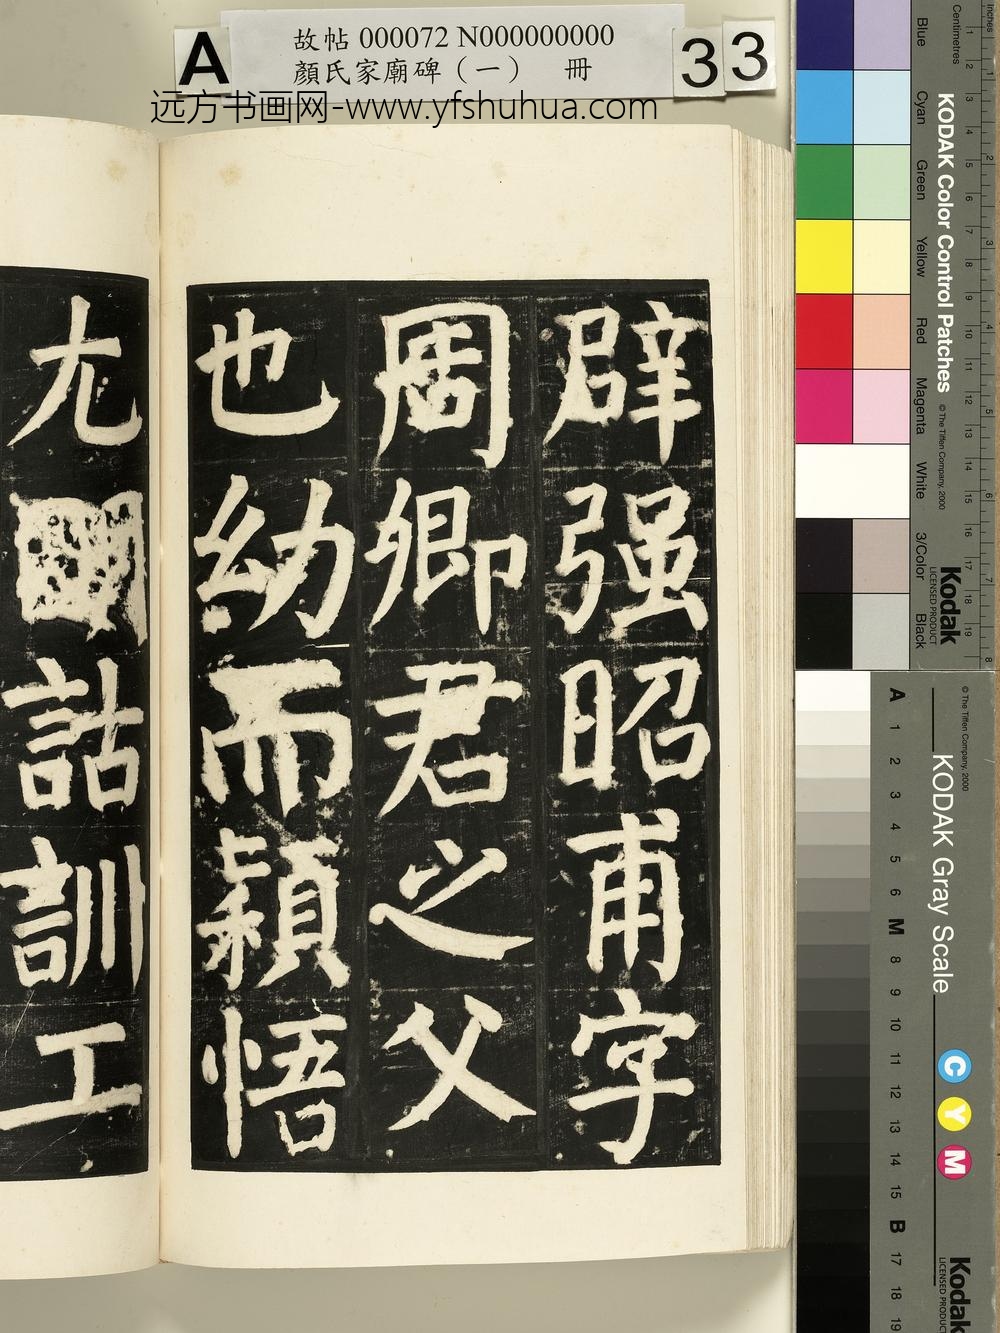 A
故帖 000072 N000000000
顏氏家廟碑（一） 冊
33
远方书画网-www.yfshuhua.com
辟强昭甫字
周卿君之父
也幼而穎悟
尢
詁訓工
Inches
Centimetres
Blue
Cyan
Green
Yellow
Red
Magenta
White
3/Color
Black
KODAK Color Control Patches
© The Tiffen Company, 2000
Kodak
LICENSED PRODUCT
1 2 3 4 5 6 7 8 9 10 11 12 13 14 15 16 17 18 19
1 2 3 4 5 6 7 8
A 1 2 3 4 5 6 M 8 9 10 11 12 13 14 15 B 17 18 19
© The Tiffen Company, 2000
KODAK Gray Scale
C Y M
Kodak
LICENSED PRODUCT